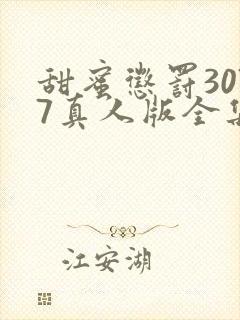 甜蜜惩罚30
7真人版全集
江安湖